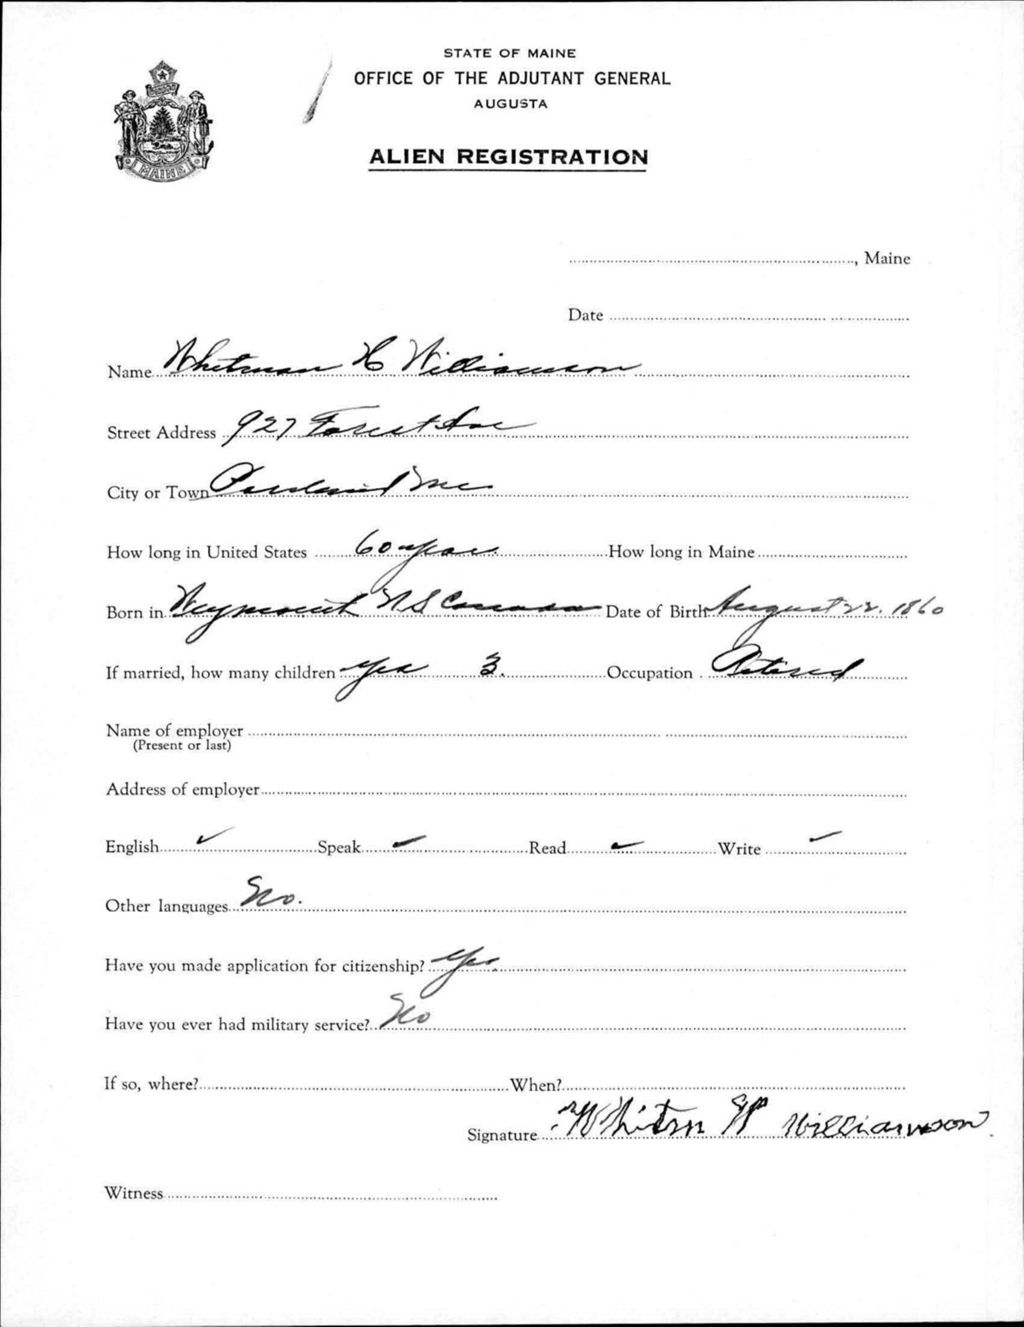 STATE OF MAINE
OFFICE OF THE ADJUTANT GENERAL
AUGUSTA
ALIEN REGISTRATION
MAINE
, Maine
Date
Name Whitman H Williamson
Street Address 927 Forest Ave
City or Town Portland Me
How long in United States 60 years How long in Maine
Born in Weymouth N S Canada Date of Birth August 22. 1860
If married, how many children yes 3. Occupation Retired
Name of employer
(Present or last)
Address of employer
English ✓ Speak ✓ Read ✓ Write ✓
Other languages No.
Have you made application for citizenship? Yes
Have you ever had military service? No
If so, where? When?
Signature Whitm H Williamson
Witness